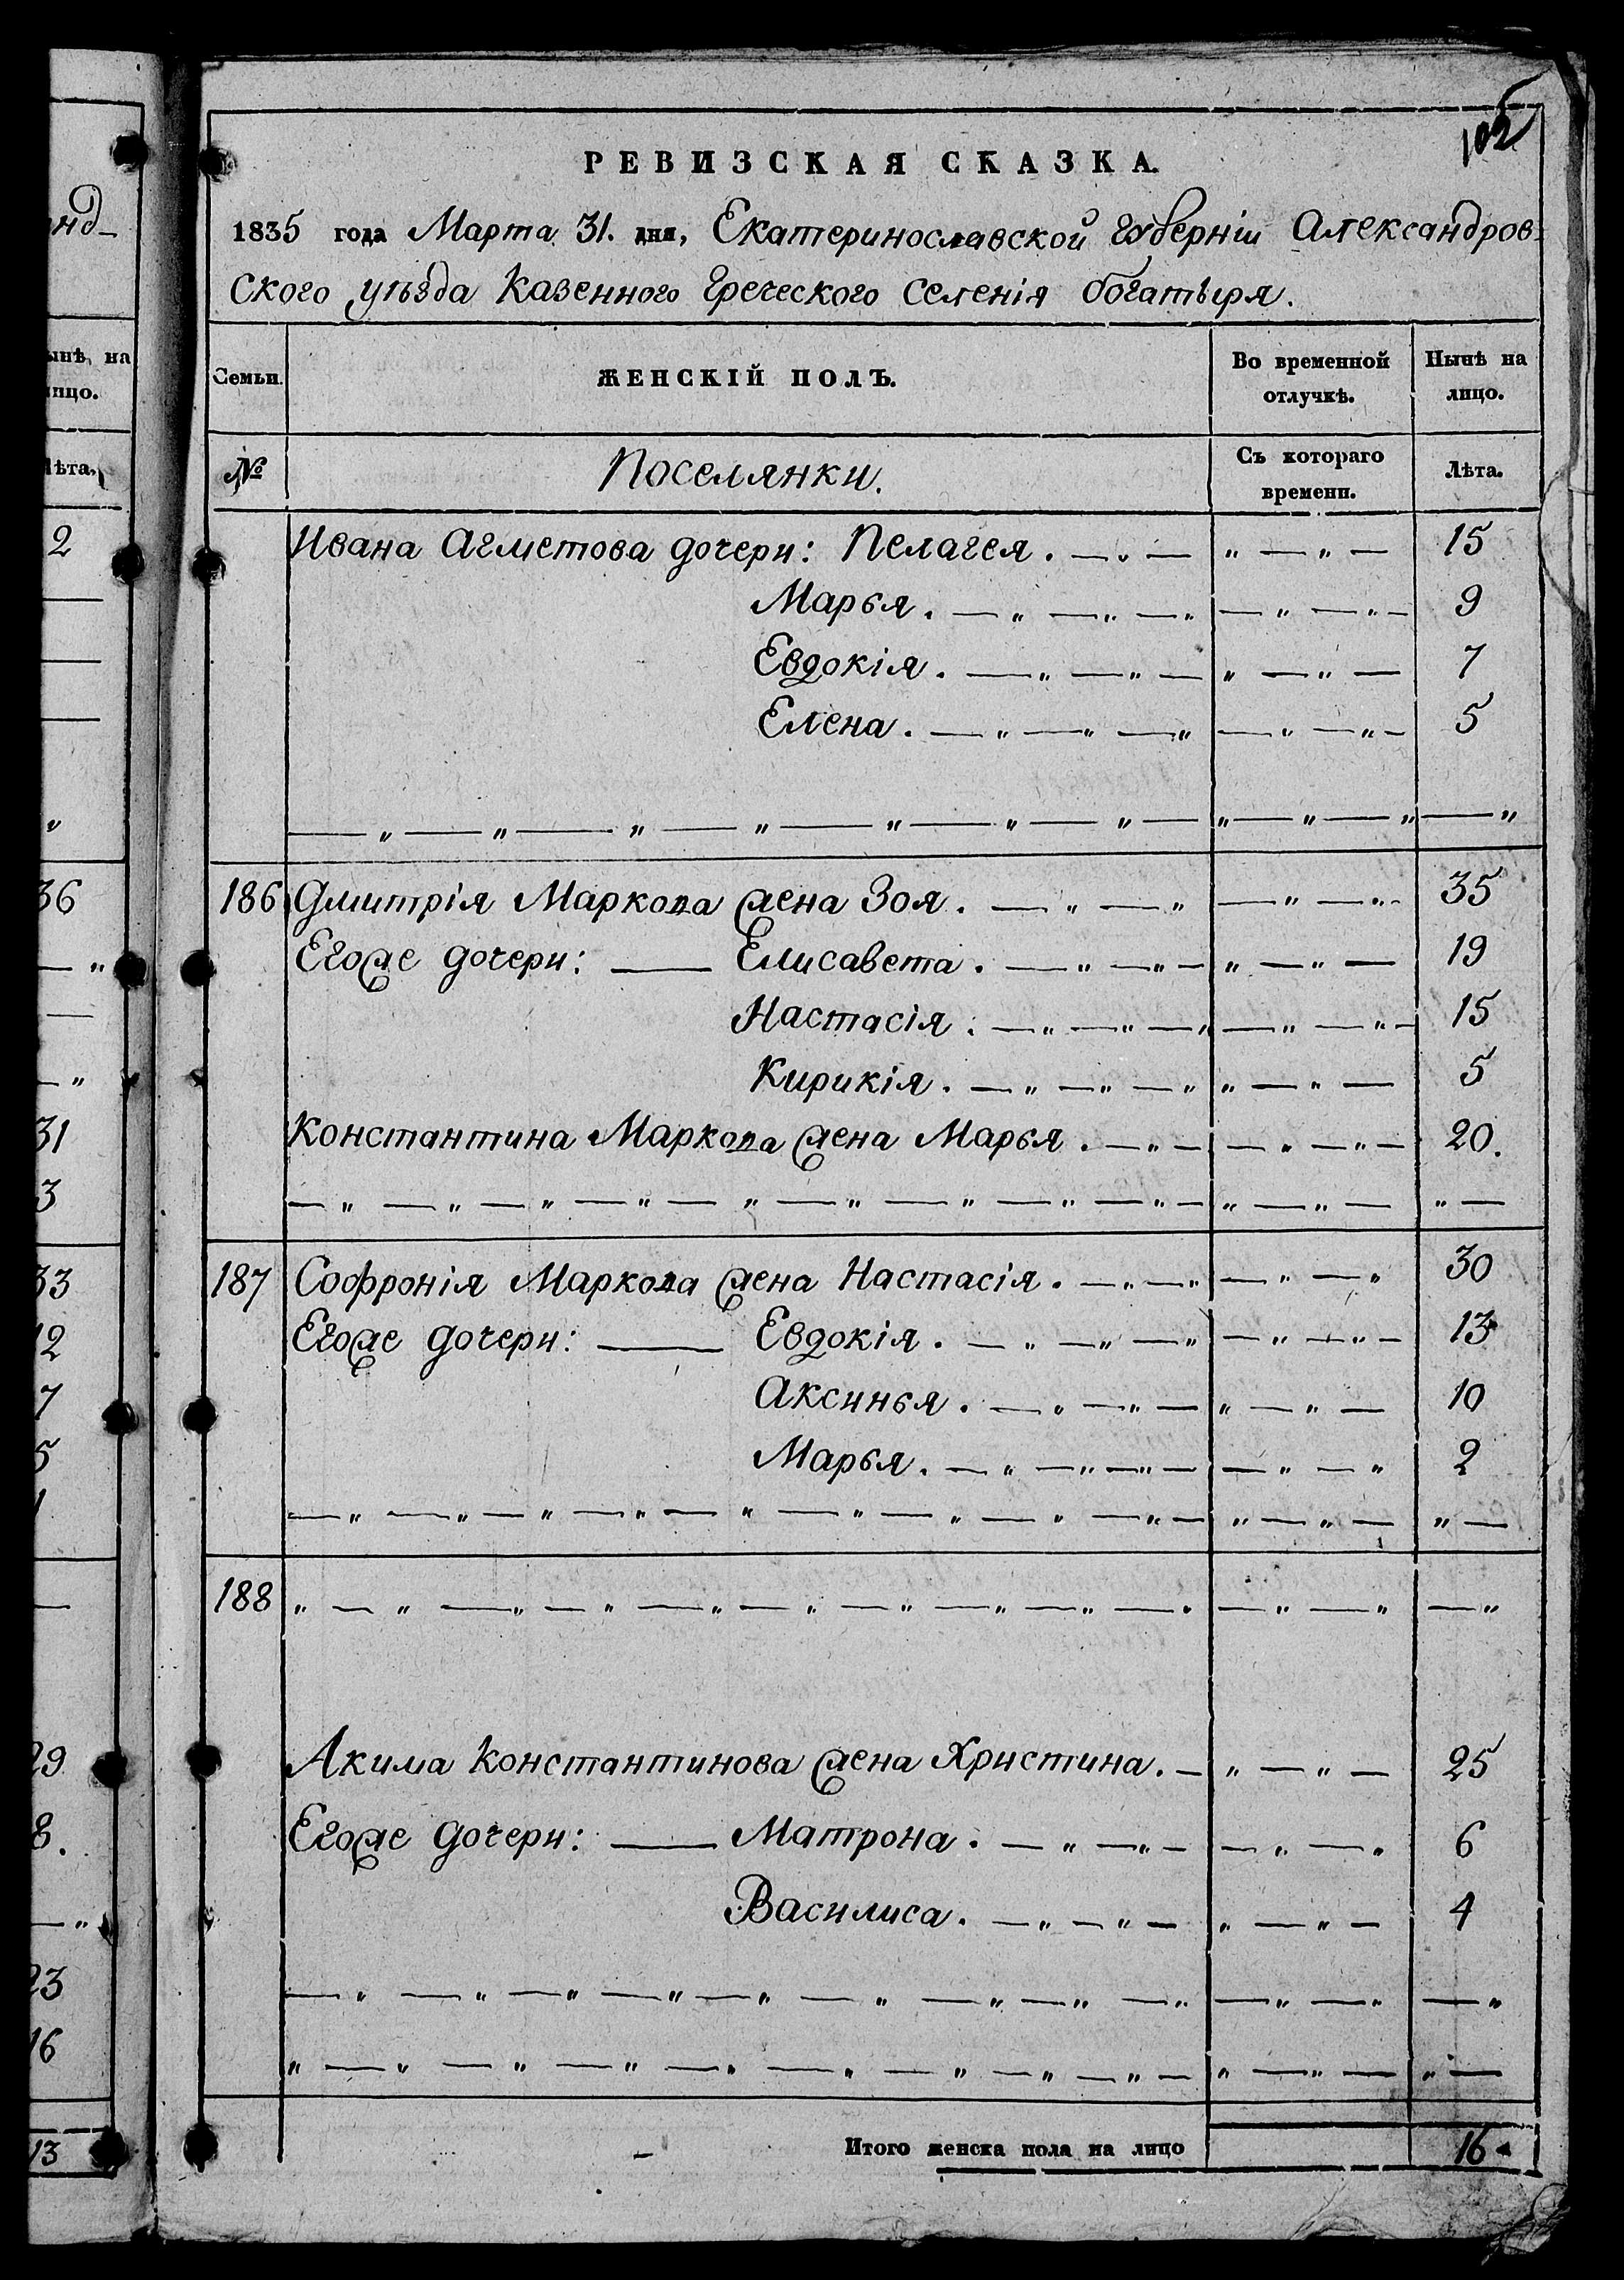 нд-
ынѣ на
ицо.
лѣта.
2
36
31
3
33
12
7
5
1
29
8.
23
16
13
102
РЕВИЗСКАЯ СКАЗКА.
1835 года Марта 31. дня, Екатеринославской губерніи Александров-
ского уѣзда Казенного Греческого Селенія богатыря.
Семьи. ЖЕНСКІЙ ПОЛЪ. Во временной отлучкѣ. Нынѣ на лицо.
№ Поселянки. Съ котораго времени. Лѣта.
Ивана Агметова дочери: Пелагея. 15
Марья. 9
Евдокія. 7
Елена. 5
186 Дмитрія Маркова жена Зоя. 35
Егоже дочери: Елисавета. 19
Настасія. 15
Кирикія. 5
Константина Маркова жена Марья. 20.
187 Софронія Маркова жена Настасія. 30
Егоже дочери: Евдокія. 13
Аксинья. 10
Марья. 2
188
Акима Константинова жена Христина. 25
Егоже дочери: Матрона. 6
Василиса. 4
Итого женска пола на лицо 16